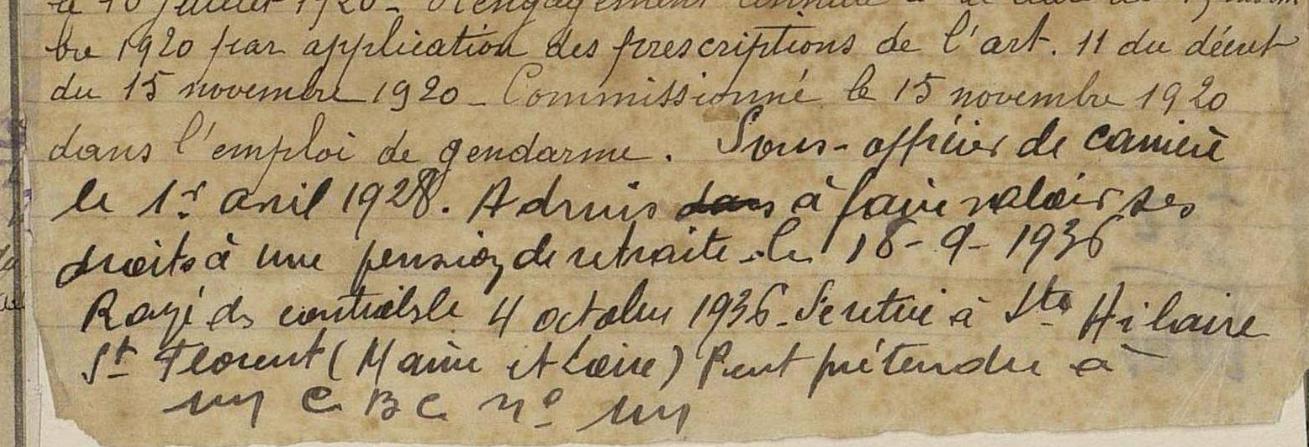 le 10 juillet 1920 - Rengagement annulé à la date du 15 novem
bre 1920 par application des prescriptions de l'art. 11 du décret
du 15 novembre 1920 - Commissionné le 15 novembre 1920
dans l'emploi de gendarme. Sous-officier de carrière
le 1er avril 1928. Admis dans à faire valoir ses
droits à une pension de retraite le 16-9-1936
Rayé des contrôles le 4 octobre 1936. Se retire à St Hilaire
St Florent (Maine et Loire) Peut prétendre à
un C B C n° un